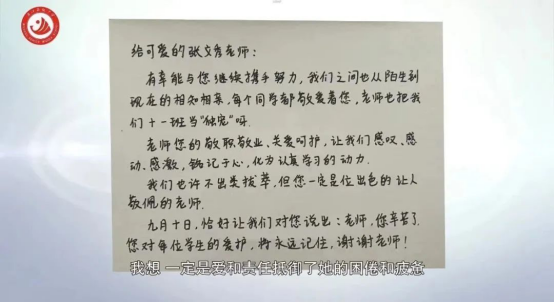 给可爱的张文秀老师：
有幸能与您继续携手努力，我们之间也从陌生到
现在的相知相亲，每个同学都敬爱着您，老师也把我
们十一班当“独宠”呀。
老师您的敬职敬业、关爱呵护，让我们感叹、感
动、感激，铭记于心，化为认真学习的动力。
我们也许不出类拔萃，但您一定是位出色的让人
敬佩的老师。
九月十日，恰好让我们对您说出：老师，您辛苦了
您对每位学生的爱护，将永远记住，谢谢老师！
我想 一定是爱和责任抵御了她的困倦和疲惫